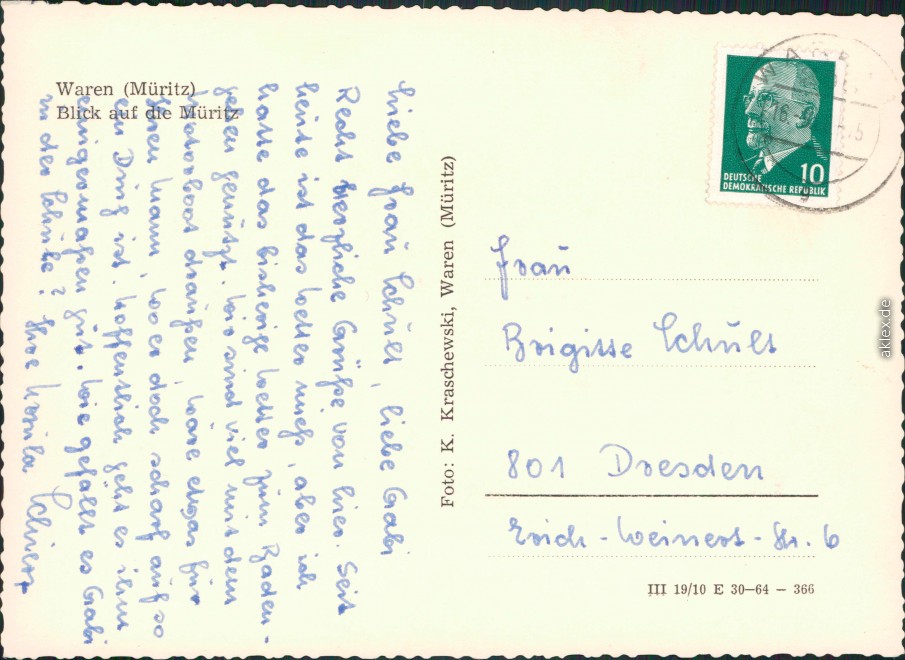 Waren (Müritz)
Blick auf die Müritz
Liebe Frau Schult, liebe Gabi
Recht herzliche Grüße von hier. Seit
heute ist das Wetter mieß, aber ich
hatte das bisherige Wetter zum Baden-
gehen genutzt. Wir sind viel mit dem
Motorboot draußen, wäre etwas für
Ihren Mann, wo er doch scharf auf so
ein Ding ist. Hoffentlich geht es ihm
einigermaßen gut. Wie gefällt es Gabi
in der Schule? Ihre
Foto: K. Kraschewski, Waren (Müritz)
DEUTSCHE
DEMOKRATISCHE REPUBLIK
10
Frau
Brigitte Schult
801 Dresden
Erich-Weinert-Str. 6
III 19/10 E 30-64 - 366
aklex.de